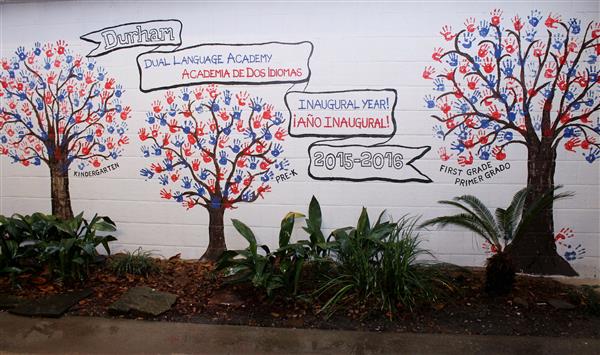 Durham
DUAL LANGUAGE ACADEMY
ACADEMIA DE DOS IDIOMAS
INAUGURAL YEAR!
¡AÑO INAUGURAL!
2015-2016
KINDERGARTEN
PRE-K
FIRST GRADE
PRIMER GRADO